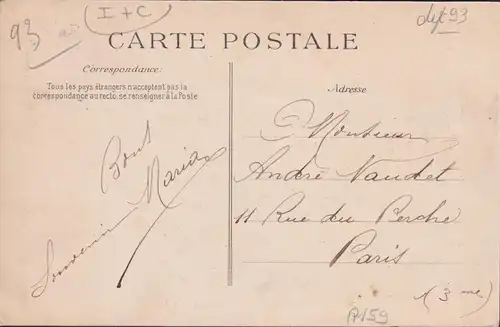 93
I + C
dept 93
CARTE POSTALE
Correspondance.
Tous les pays étrangers n'acceptent pas la
correspondance au recto, se renseigner à la Poste
Bons
Souvenir Maria
Adresse
Monsieur
André Vaudet
11 Rue du Perche
Paris
(3 me)
P159